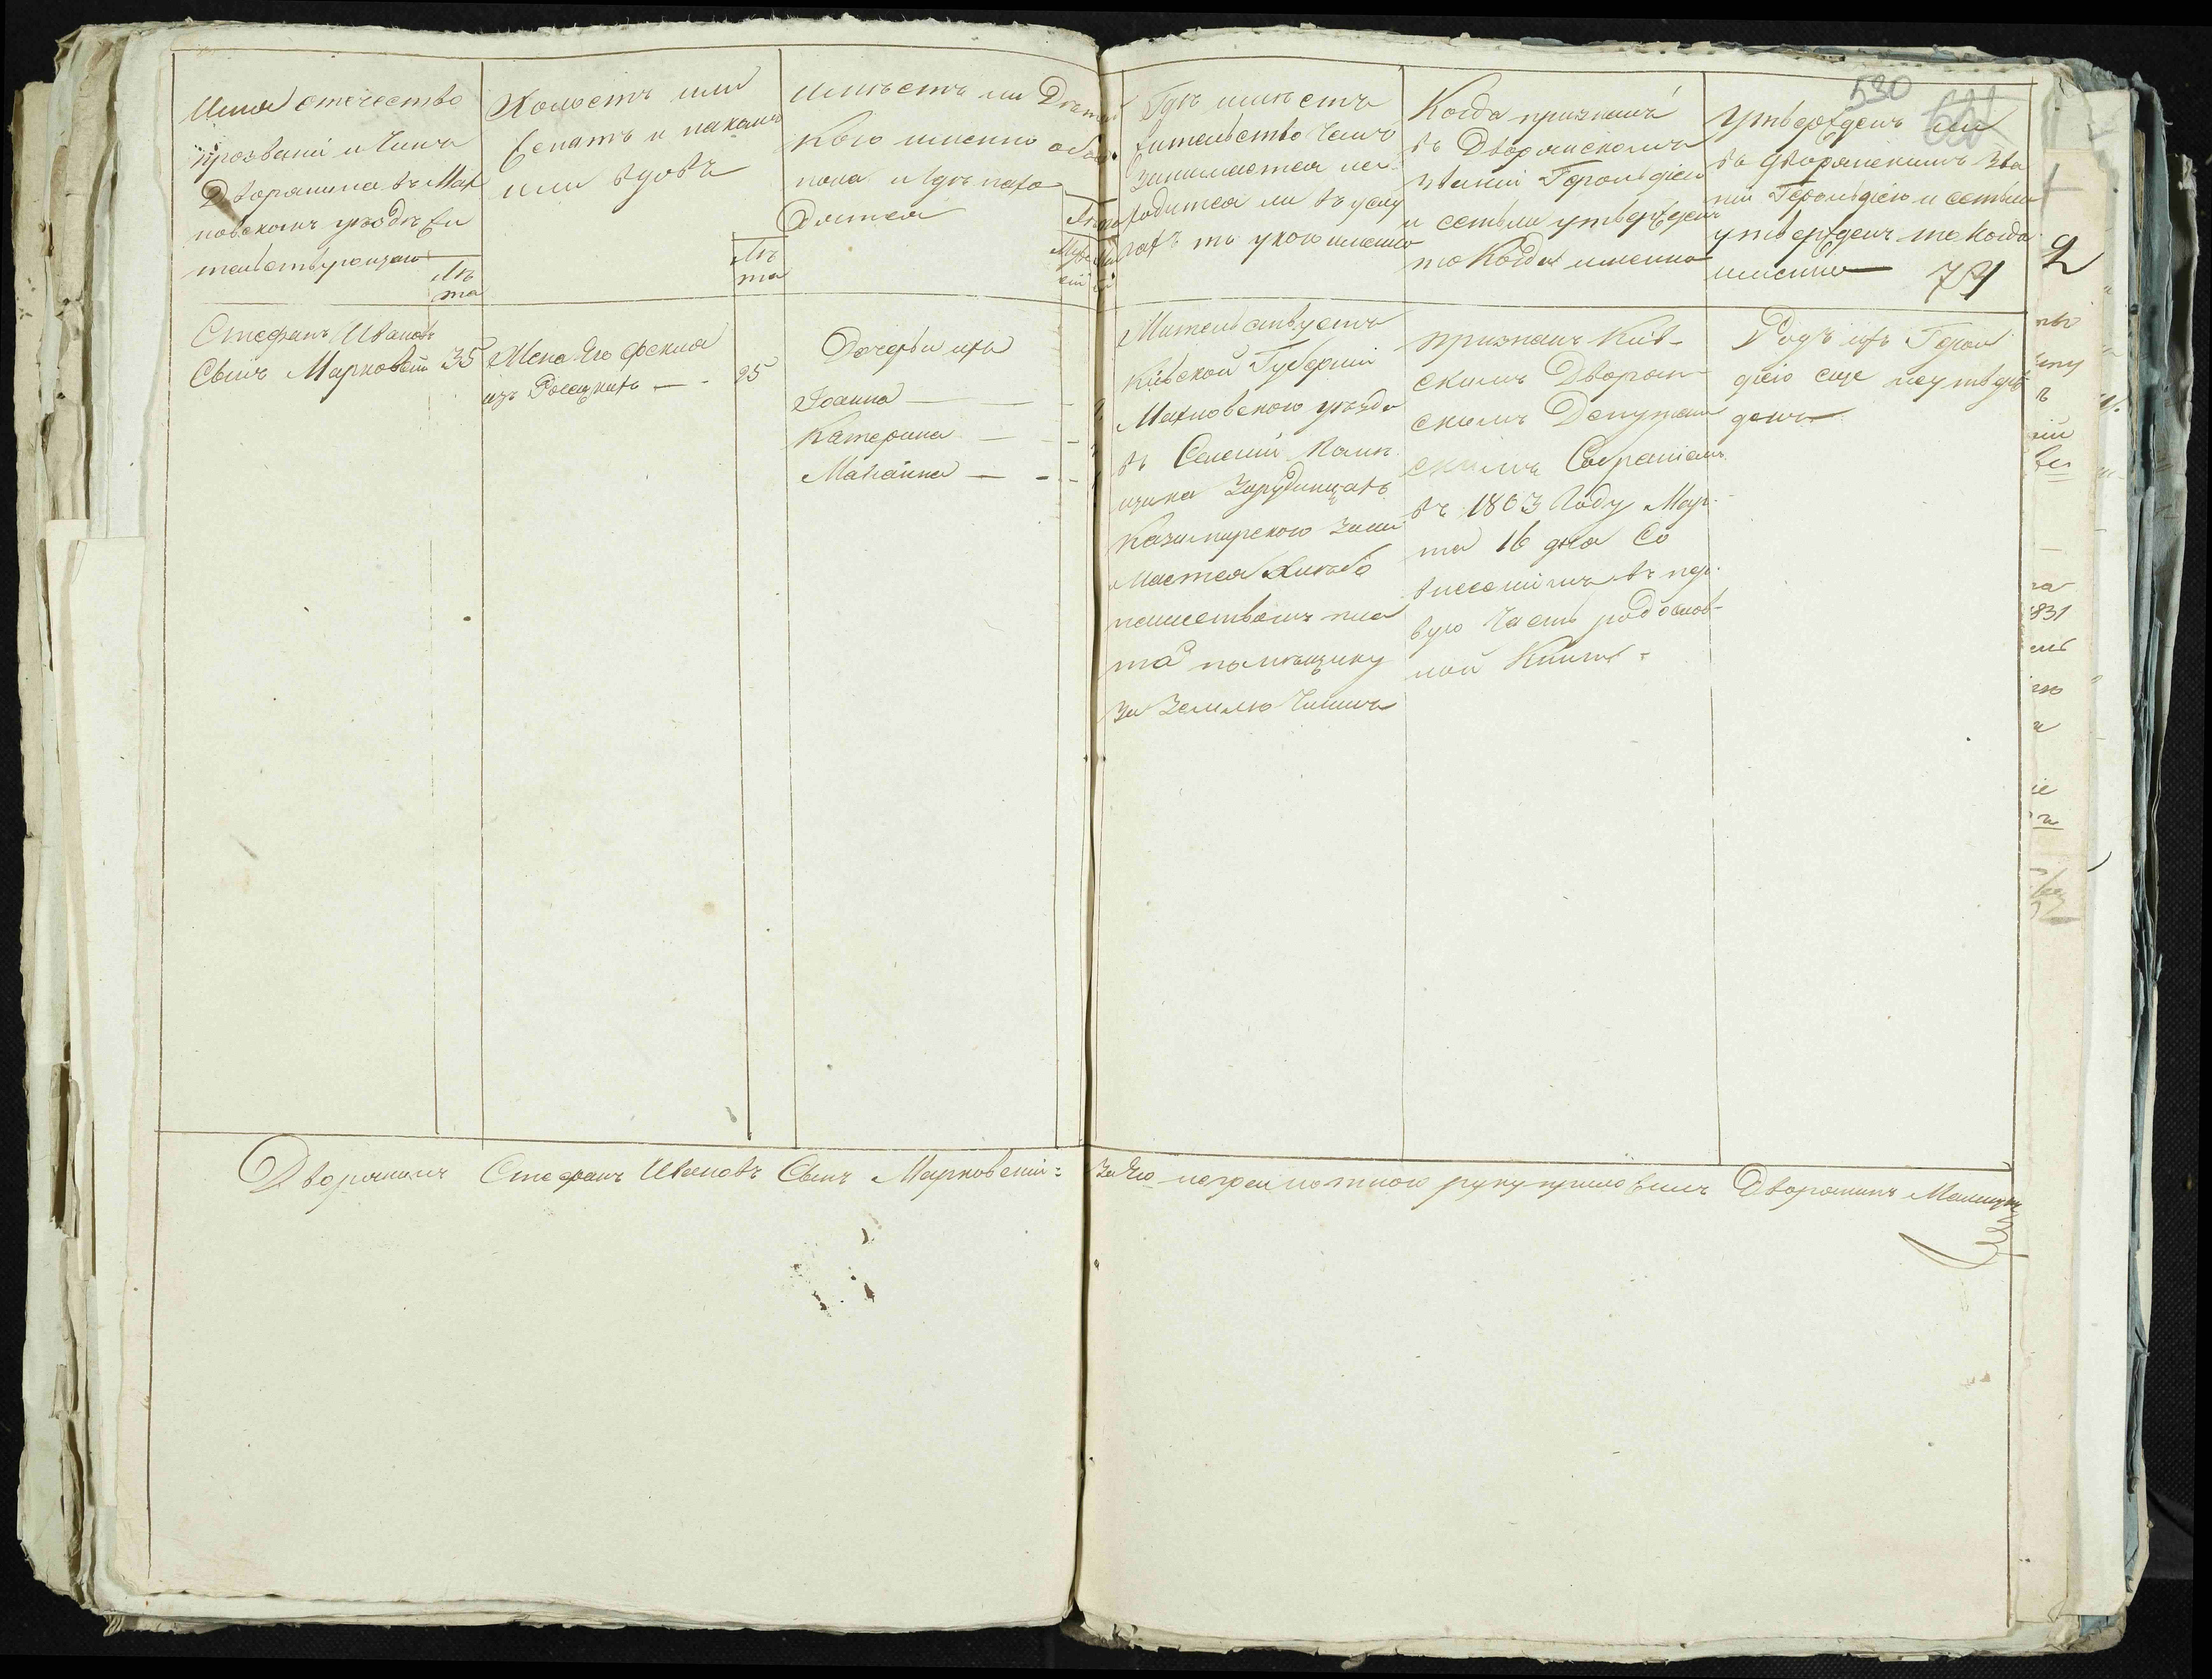 Имя отечество
прозвания и Чинъ
Дворянина въ Мах
новскомъ уѣздѣ жи
тельствующаго
Лѣ
та
Холостъ или
женатъ и накомъ
или вдовъ
Лѣ
та
Имѣетъ ли Дѣтей
Кого именно обоего
пола и гдѣ нахо
дятся
530
Гдѣ имѣетъ
жительство Чемъ
занимается не
ходится ли въ услу
гахъ то укого именно
Когда признанъ
въ Дворянскомъ
званіи Герольдіею
и естьли утвержденъ
то Когда именно
Утвержденъ ли
въ дворянскомъ Зва
ніи Герольдіею и естьли
утвержденъ то когда
именно 74
Стефанъ Ивановъ
Сынъ Марковскій 35
Жена Его Фекла
изъ 25
Дочерьи ихъ
Іоанна
Катерина
Маріанна
Жительствуетъ
Кіевской Губерніи
Махновского уѣзда
въ Селеніи Помѣ
щика Зарудинцахъ
Казимирского Зани
мается Хлебо
пашествомъ пла
та помѣщику
За Землю Чиншъ
признанъ Кіев-
скимъ Дворян-
скимъ Депутат
скимъ Собраніемъ
въ 1803 Году Мар-
та 16 дня Со
внесеніемъ въ пер-
вую Часть родослов-
ной Книги
Родъ ихъ Героль
діею еще неутверж
денъ
Дворянинъ Стефанъ Ивановъ Сынъ Марковскій: За Его неграмотного руку приложилъ Дворянинъ
2
831